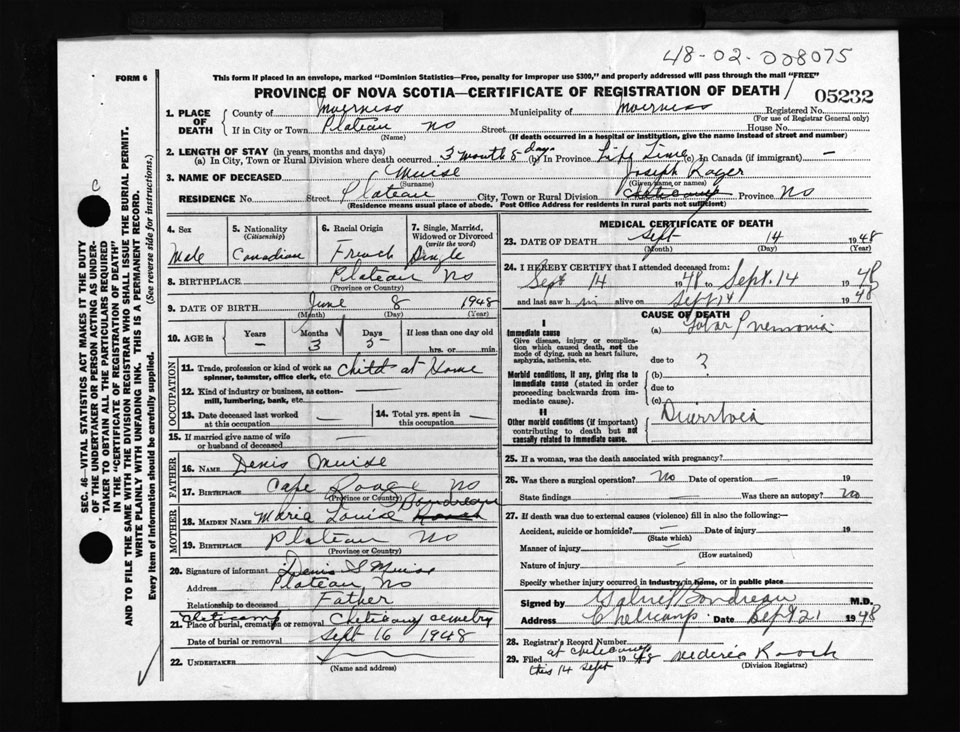 48-02-008075
FORM 6
This form if placed in an envelope, marked "Dominion Statistics—Free, penalty for improper use $300," and properly addressed will pass through the mail "FREE"
PROVINCE OF NOVA SCOTIA—CERTIFICATE OF REGISTRATION OF DEATH
05232
1. PLACE OF DEATH
County of Inverness Municipality of Inverness Registered No.
(For use of Registrar General only)
If in City or Town Plateau NS Street House No.
(Name) (If death occurred in a hospital or institution, give the name instead of street and number)
2. LENGTH OF STAY (in years, months and days)
(a) In City, Town or Rural Division where death occurred 3 month 5 days (b) In Province Life Time (c) In Canada (if immigrant) —
3. NAME OF DECEASED Muise Joseph Roger
(Surname) (Given name or names)
RESIDENCE No. Street Plateau City, Town or Rural Division Cheticamp Province NS
(Residence means usual place of abode. Post Office Address for residents in rural parts not sufficient)
4. Sex
Male
5. Nationality (Citizenship)
Canadian
6. Racial Origin
French
7. Single, Married, Widowed or Divorced (write the word)
Single
8. BIRTHPLACE Plateau NS
(Province or Country)
9. DATE OF BIRTH June 8 1948
(Month) (Day) (Year)
10. AGE in
Years —
Months 3
Days 5
If less than one day old
hrs. or min.
OCCUPATION
11. Trade, profession or kind of work as spinner, teamster, office clerk, etc. Child at Home
12. Kind of industry or business, as cotton-mill, lumbering, bank, etc. —
13. Date deceased last worked at this occupation —
14. Total yrs. spent in this occupation —
15. If married give name of wife or husband of deceased —
FATHER
16. NAME Denis Muise
17. BIRTHPLACE Cape Rouge NS
(Province or Country)
MOTHER
18. MAIDEN NAME Marie Louise Boudreau
19. BIRTHPLACE Plateau NS
(Province or Country)
20. Signature of informant Denis S Muise
Address Plateau NS
Relationship to deceased Father
Cheticamp
21. Place of burial, cremation or removal Cheticamp cemetry
Date of burial or removal Sept 16 1948
22. UNDERTAKER
(Name and address)
MEDICAL CERTIFICATE OF DEATH
23. DATE OF DEATH Sept 14 1948
(Month) (Day)
24. I HEREBY CERTIFY that I attended deceased from:
Sept 14 1948 to Sept. 14 1948
and last saw him alive on Sept 14 1948
CAUSE OF DEATH
I
Immediate cause
Give disease, injury or complication which caused death, not the mode of dying, such as heart failure, asphyxia, asthenia, etc.
(a) Lobar Pneumonia
due to ?
Morbid conditions, if any, giving rise to immediate cause (stated in order proceeding backwards from immediate cause).
(b)
due to
(c)
II
Other morbid conditions (if important) contributing to death but not causally related to immediate cause.
Diarrhoea
25. If a woman, was the death associated with pregnancy?
26. Was there a surgical operation? No Date of operation — 19
State findings — Was there an autopsy? No
27. If death was due to external causes (violence) fill in also the following:—
Accident, suicide or homicide? — Date of injury 19
(State which)
Manner of injury —
(How sustained)
Nature of injury —
Specify whether injury occurred in industry, in home, or in public place
Signed by Gabriel Boudreau M.D.
Address Cheticamp Date Sept 21 1948
28. Registrar's Record Number
at Cheticamp
29. Filed this 14 Sept 1948
(Division Registrar)
SEC. 46—VITAL STATISTICS ACT MAKES IT THE DUTY
OF THE UNDERTAKER OR PERSON ACTING AS UNDER-
TAKER TO OBTAIN ALL THE PARTICULARS REQUIRED
IN THE "CERTIFICATE OF REGISTRATION OF DEATH"
AND TO FILE THE SAME WITH THE DIVISION REGISTRAR WHO SHALL ISSUE THE BURIAL PERMIT.
WRITE PLAINLY WITH UNFADING INK. THIS IS A PERMANENT RECORD.
Every item of information should be carefully supplied. (See reverse side for instructions.)